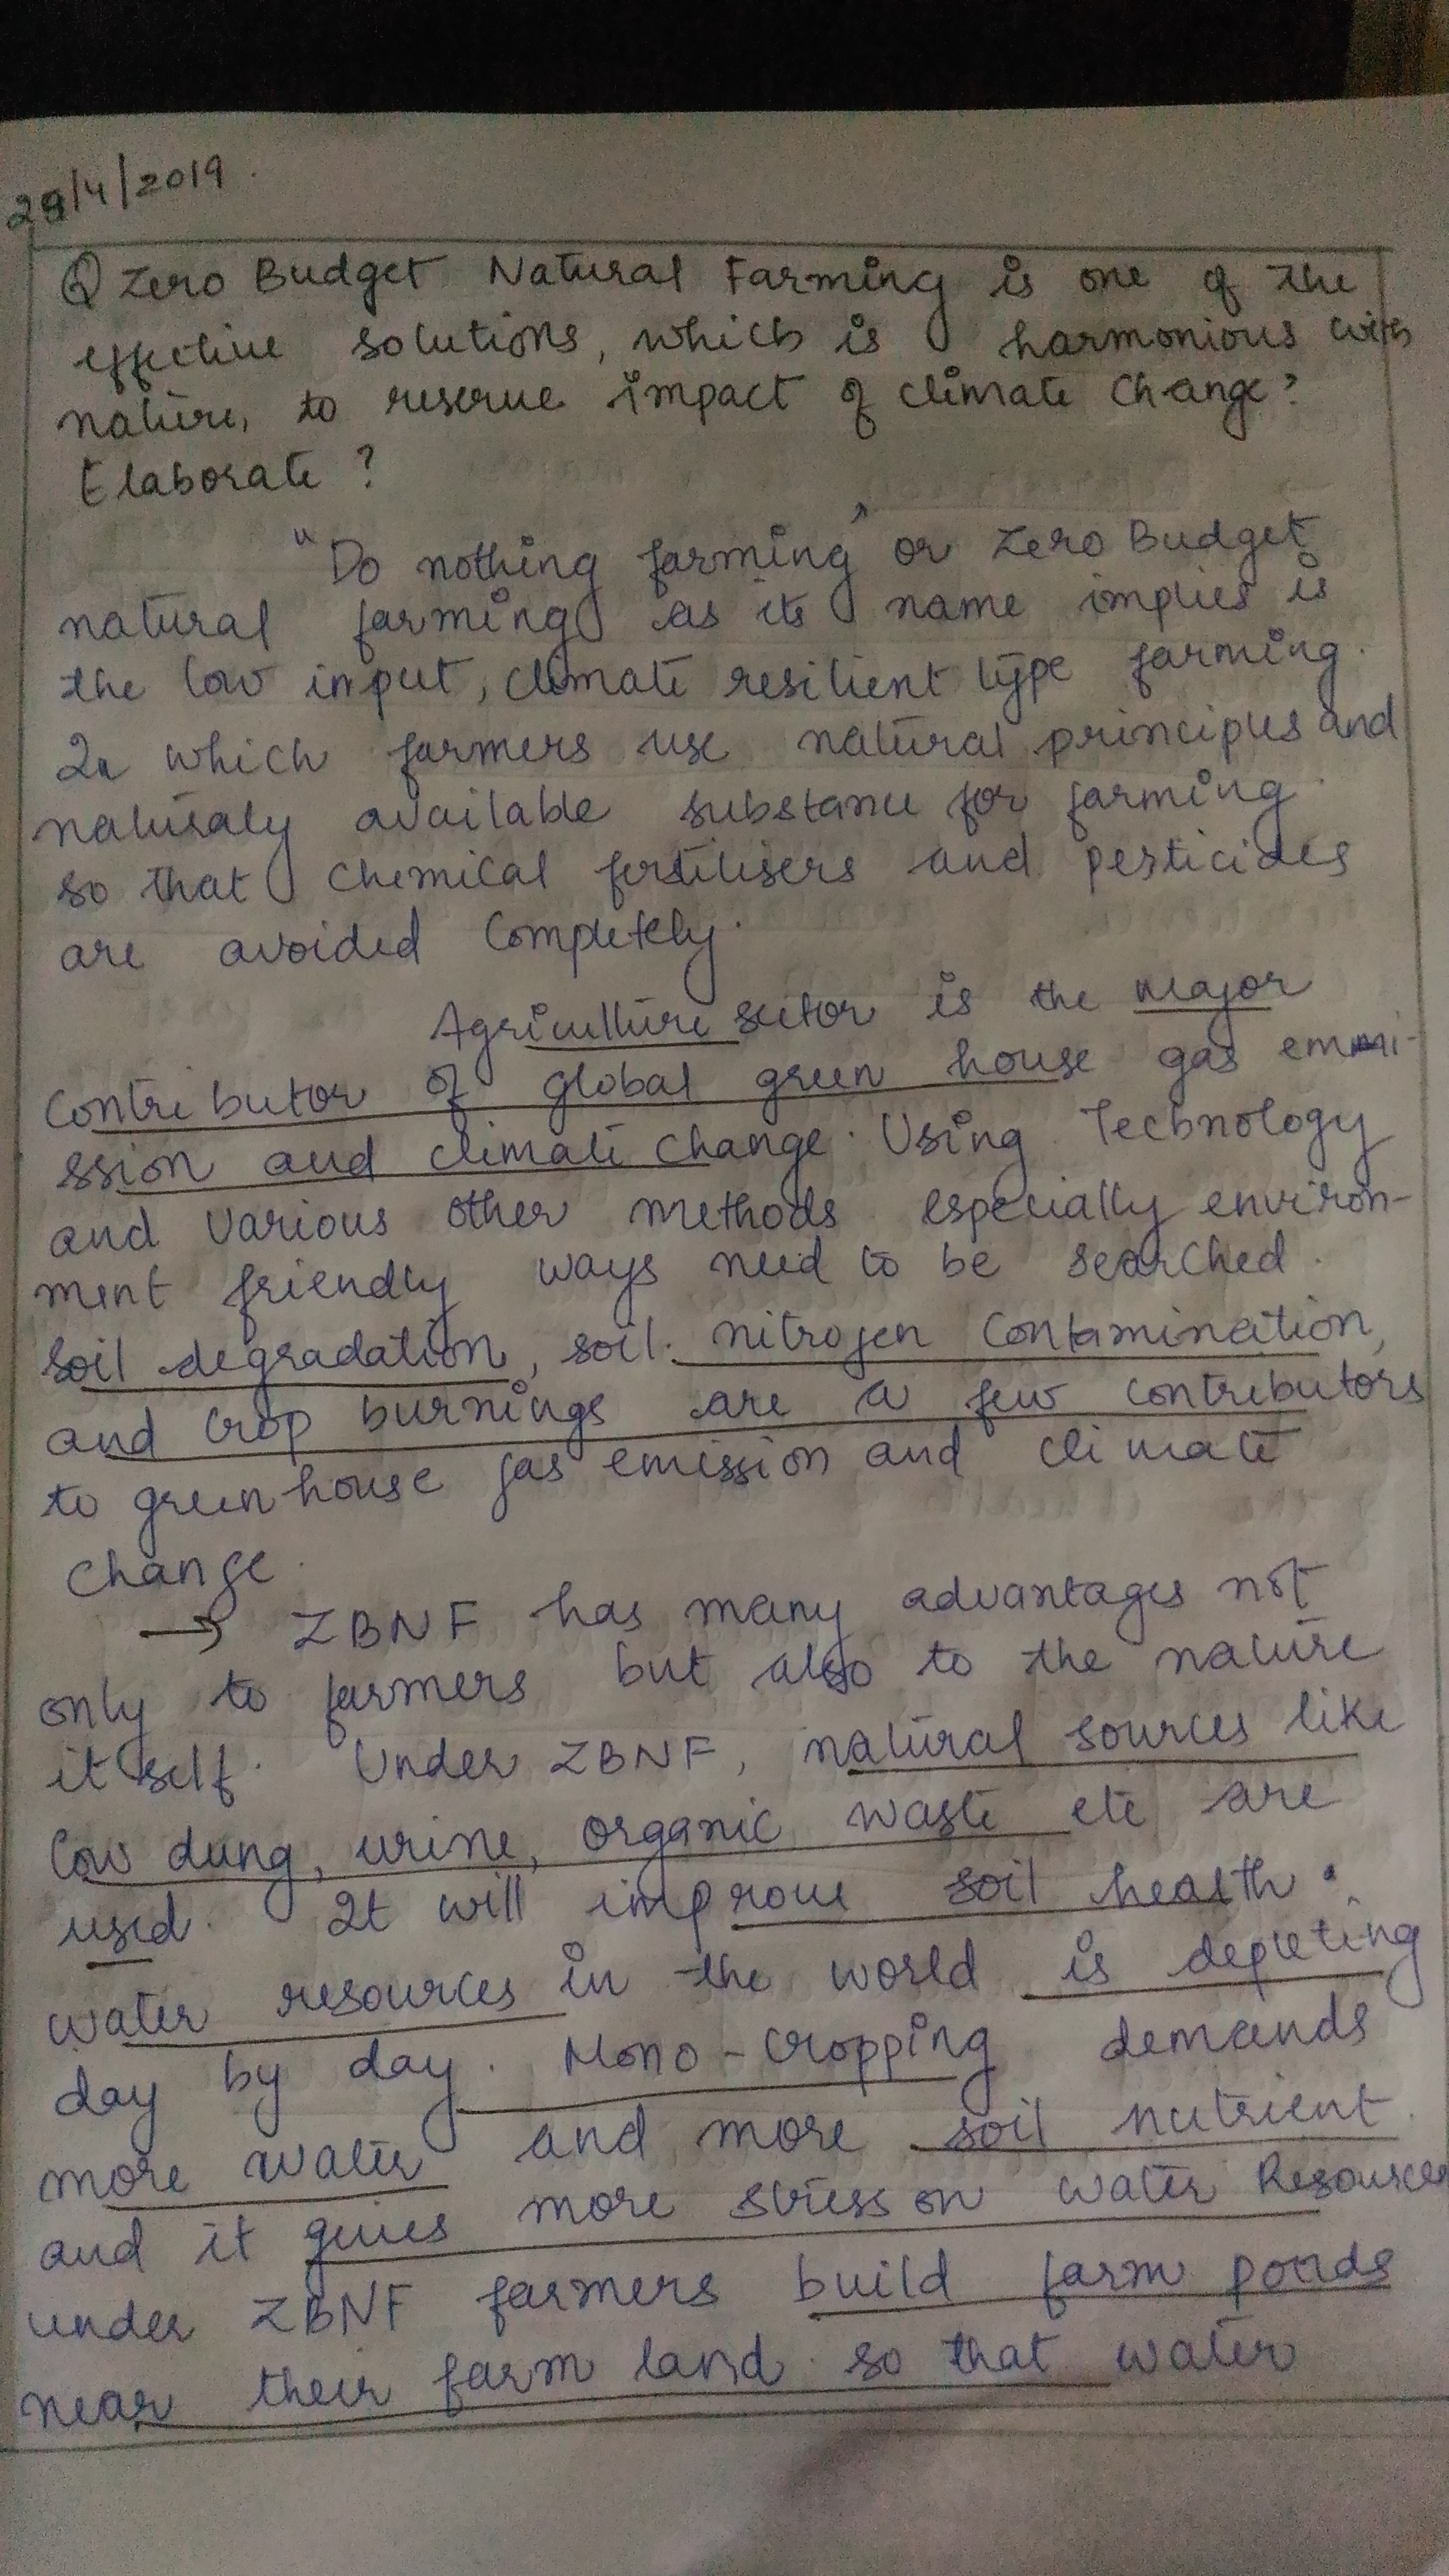 29/4/2019.
Q Zero Budget Natural Farming is one of the
effective solutions, which is harmonious with
nature, to reserve impact of climate change?
Elaborate?
"Do nothing farming" or Zero Budget
natural farming as its name implies is
the low input, climate resilient type farming.
In which farmers use natural principles and
naturaly available substance for farming.
so that chemical fertilisers and pesticides
are avoided completely.
Agriculture sector is the major
contributor of global green house gas emmi-
ssion and climate change. Using Technology
and various other methods especially environ-
ment friendly ways need to be searched.
soil degradation, soil nitrogen contamination,
and crop burnings are a few contributors
to green house gas emission and climate
change.
→ ZBNF has many advantages not
only to farmers but also to the nature
it self. Under ZBNF, natural sources like
cow dung, urine, organic waste etc are
used. It will improve soil health.
water resources in the world is depleting
day by day. Mono-cropping demands
more water and more soil nutrient
and it gives more stress on water Resources
under ZBNF farmers build farm ponds
near their farm land so that water